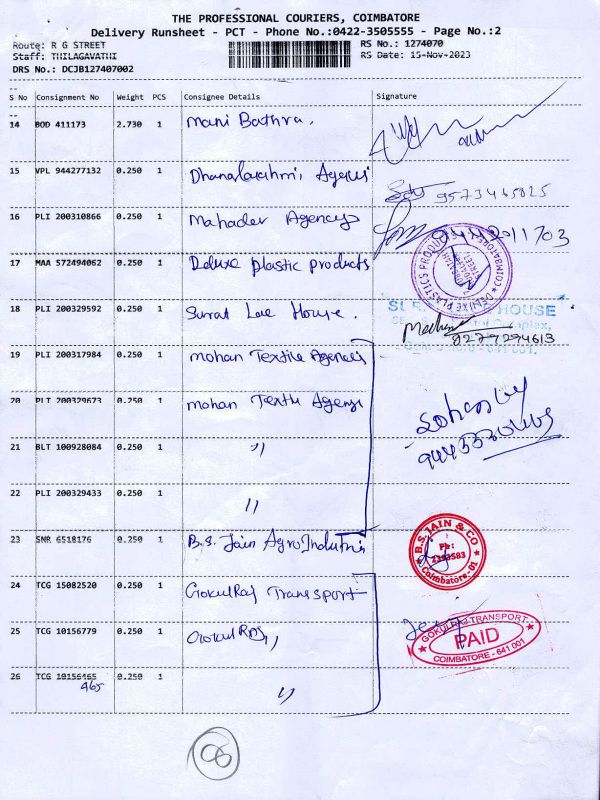 THE PROFESSIONAL COURIERS, COIMBATORE
Delivery Runsheet - PCT - Phone No.:0422-3505555 - Page No.:2
Route: R G STREET RS No.: 1274070
Staff: THILAGAVATHI RS Date: 15-Nov-2023
DRS No.: DCJB127407002
S No Consignment No Weight PCS Consignee Details Signature
14 BOD 411173 2.730 1 Mani Bathra.
15 VPL 944277132 0.250 1 Dhanalakshmi Agencies
9573465825
16 PLI 200310866 0.250 1 Mahadev Agency
17 MAA 572494062 0.250 1 Deluxe plastic products
DELUXE PLASTICS PRODUCTS COIMBATORE
18 PLI 200329592 0.250 1 Surat Lace House.
HOUSE
9277274613
19 PLI 200317984 0.250 1 mohan Textile Agencies
20 PLI 200329673 0.250 1 mohan Textile Agency
21 BLT 100928084 0.250 1 "
22 PLI 200329433 0.250 1 "
23 SNR 6518176 0.250 1 B.S. Jain Agro Industries
B.S. JAIN & CO
Ph:
Coimbatore-01
24 TCG 15082520 0.250 1 GokulRaj Transport
25 TCG 10156779 0.250 1 GokulRaj "
GOKULRAJ TRANSPORT
PAID
COIMBATORE - 641 001
26 TCG 10156465 0.250 1 "
465
06